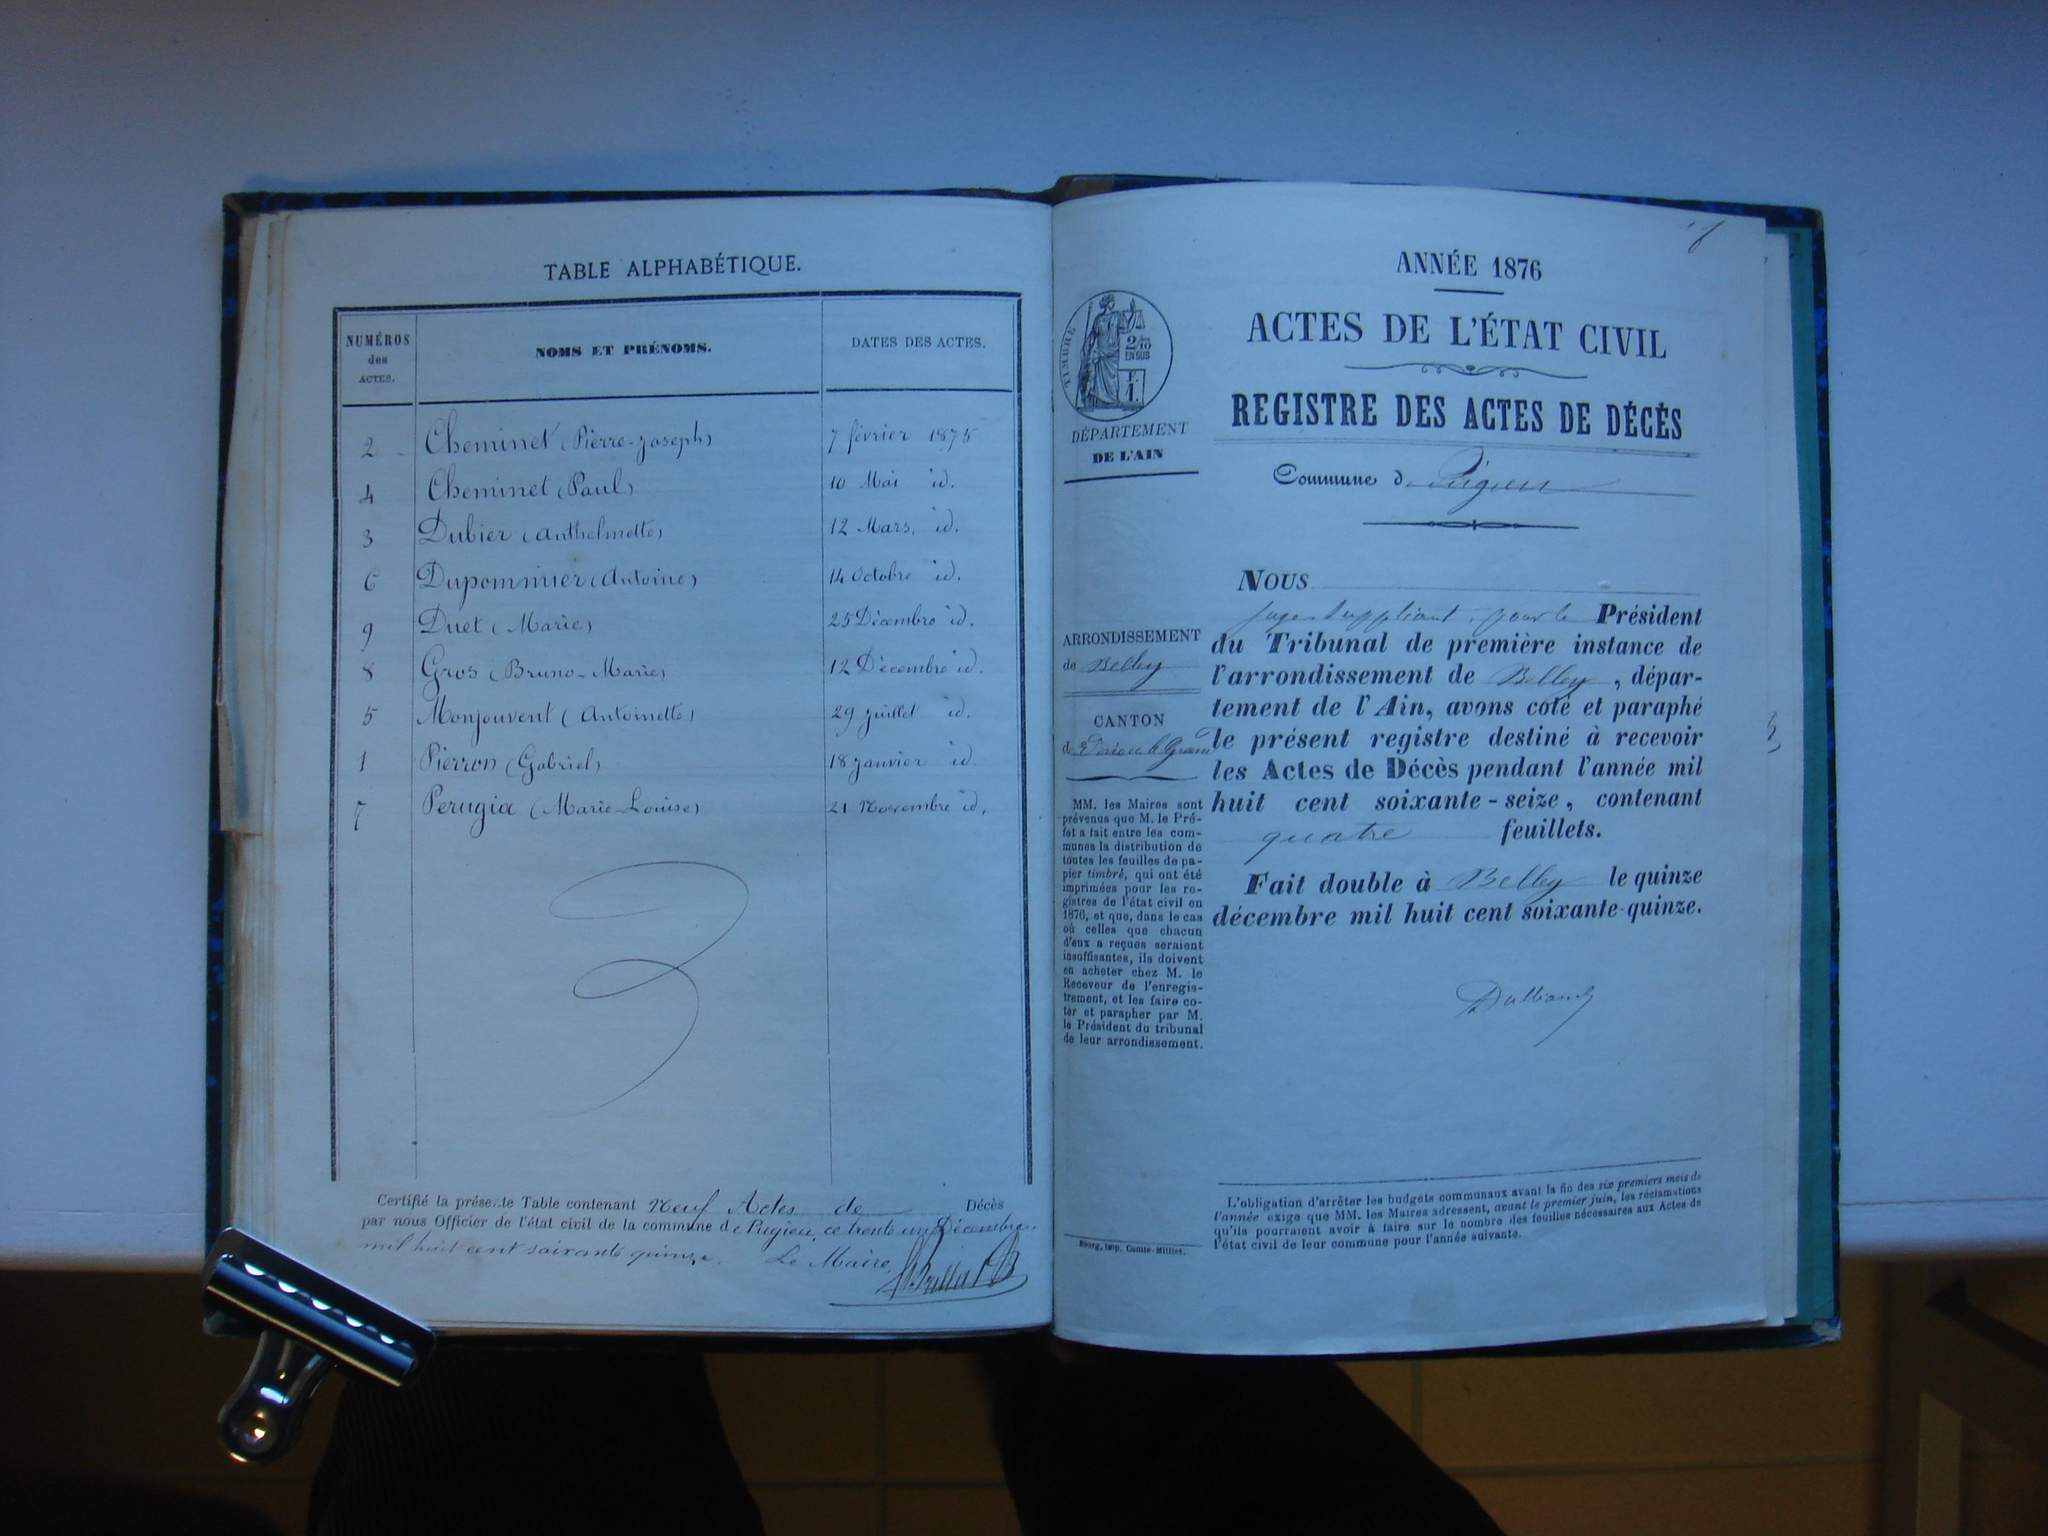 TABLE ALPHABÉTIQUE.
NUMÉROS
des
ACTES.
NOMS ET PRÉNOMS.
DATES DES ACTES.
2 Cheminet (Pierre-Joseph) 7 février 1875
4 Cheminet (Paul) 10 Mai id.
3 Dubier (Anthelmette) 12 Mars, id.
6 Dupommier (Antoine) 14 Octobre id.
9 Duet (Marie) 25 Décembre id.
8 Gros (Bruno-Marie) 12 Décembre id.
5 Monjouvent (Antoinette) 29 juillet id.
1 Pierron (Gabriel) 18 janvier id.
7 Perugia (Marie-Louise) 21 Novembre id.
Certifié la présente Table contenant Neuf Actes de Décès
par nous Officier de l'état civil de la commune de Pugieu, ce trente un Décembre
mil huit cent soixante quinze. Le Maire,
ANNÉE 1876
ACTES DE L'ÉTAT CIVIL
REGISTRE DES ACTES DE DÉCÈS
Commune d Pugieu
TIMBRE
2/10
EN SUS
F.
1.
DÉPARTEMENT
DE L'AIN
ARRONDISSEMENT
de Belley
CANTON
d Virieu le Grand
MM. les Maires sont
prévenus que M. le Pré-
fet a fait entre les com-
munes la distribution de
toutes les feuilles de pa-
pier timbré, qui ont été
imprimées pour les re-
gistres de l'état civil en
1876, et que, dans le cas
où celles que chacun
d'eux a reçues seraient
insuffisantes, ils doivent
en acheter chez M. le
Receveur de l'enregis-
trement, et les faire co-
ter et parapher par M.
le Président du tribunal
de leur arrondissement.
Bourg, imp. Comte-Milliet.
NOUS
juge suppléant, pour le Président
du Tribunal de première instance de
l'arrondissement de Belley, dépar-
tement de l'Ain, avons coté et paraphé
le présent registre destiné à recevoir
les Actes de Décès pendant l'année mil
huit cent soixante-seize, contenant
quatre feuillets.
Fait double à Belley le quinze
décembre mil huit cent soixante-quinze.
L'obligation d'arrêter les budgets communaux avant la fin des six premiers mois de
l'année exige que MM. les Maires adressent, avant le premier juin, les réclamations
qu'ils pourraient avoir à faire sur le nombre des feuilles nécessaires aux Actes de
l'état civil de leur commune pour l'année suivante.